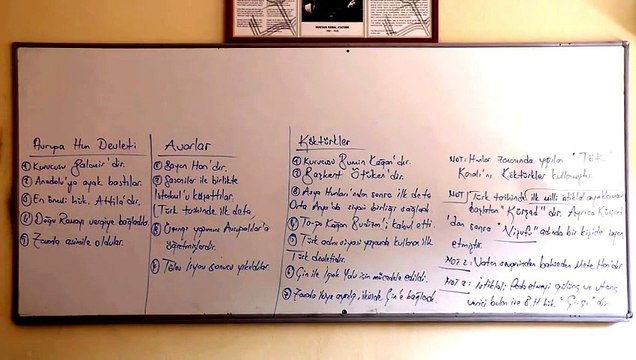 MUSTAFA KEMAL ATATÜRK
Avrupa Hun Devleti
Kurucusu Balamir'dir.
Anadolu'ya ayak bastılar.
En önemli hük. Attila'dır.
Doğu Roma'yı vergiye bağladılar.
Zamanla asimile oldular.
Avarlar
Bayan Han'dır.
Sasaniler ile birlikte
İstanbul'u kuşattılar.
Türk tarihinde ilk defa
Üzengi yapımını Avrupalılar'a
öğretmişlerdir.
isyanı sonucu yıkıldılar.
Köktürkler
Kurucusu Bumin Kağan'dır.
Başkent Ötüken'dir.
Asya Hunları'ndan sonra ilk defa
Orta Asya'da siyasi birliği sağladı
Kağan Budizm'i kabul etti.
Türk adını siyasi yapıda kullanan ilk
Türk devletidir.
Çin ile İpek Yolu için mücadele edildi.
Zamanla ikiye ayrılıp, Çin'e bağlandı.
NOT: Hunlar zamanında yapılan "Tötö"
Kanalı'nı Köktürkler kullanmıştır.
NOT Türk tarihinde ilk milli istiklal ayaklanmasını
başlatan "Kürşad" dır. Ayrıca Kürşad
'dan sonra adında bir kişide isyan
etmiştir.
NOT 2: Vatan sevgisinden bahseden Mete Han'dır
NOT istiklali ve utanç
verici bulan ise B.H hük. "Çi-çi" dir